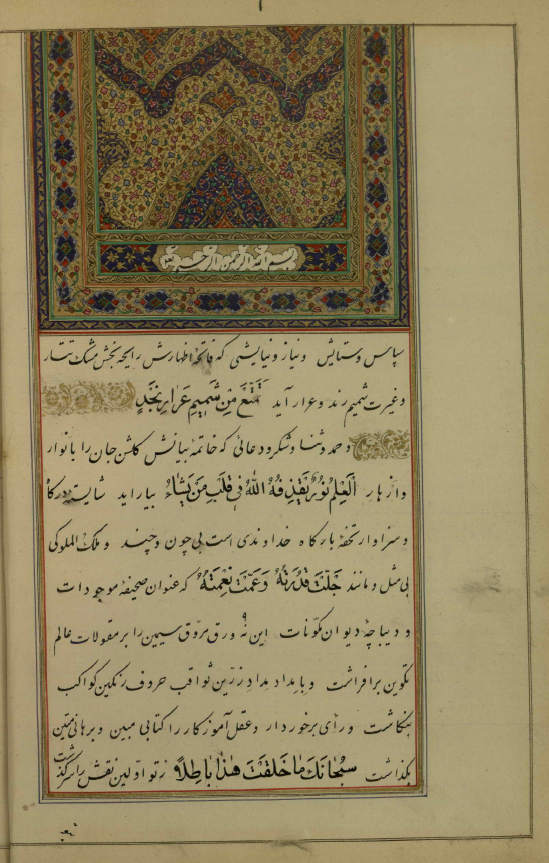 بسم الله الرحمن الرحیم
سپاس و ستایش و نیاز و نیایشی که فاتحهٔ اظهارش رایحه بخش مشک تتار
و غیرت شمیم رند و عرار آید تَمَتَّعْ مِنْ شَمِیمِ عَرارِ نَجْدٍ
و حمد و ثنا و شکر و دعائی که خاتمهٔ بیانش گلشن جان را بانوار
و ازهار اَلْعِلْمُ نُورٌ یَقْذِفُهُ اللّٰهُ فِی قَلْبِ مَنْ یَشَاءُ بیاراید شایسته درکاه
و سزاوار تحفهٔ بارکاه خداوندی است بی چون و چند و ملک الملوکی
بی مثل و مانند جَلَّتْ قُدْرَتُهُ وَ عَمَّتْ نِعْمَتُهُ که عنوان صحیفهٔ موجودات
و دیباچهٔ دیوان مکوّنات این نُه ۹ ورق مروّق سیمین را بر مقولات عالم
تکوین برافراشت و بامداد بمداد زرّین ثواقب حروف رنکین کواکب
بنکاشت و رأی برخوردار و عقل آموزکار را کتابی مبین و برهانی متین
بکذاشت سُبْحانَکَ ما خَلَقْتَ هٰذا باطِلاً ز تو اوّلین نقش را سرکذشت